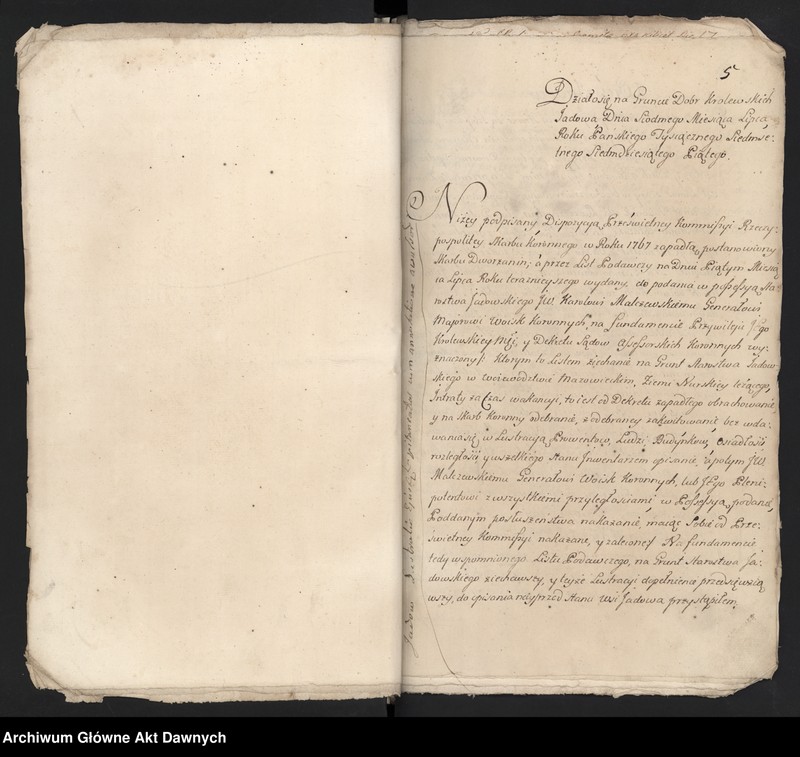 5
Działosię na Gruncie Dobr Krolewskich
Jadowa Dnia Siodmego Miesiąca Lipca
Roku Pańskiego Tysiącznego Siedmse-
tnego Siedmdziesiątego Piątego.
Niżey podpisany Dispozycyą Prześwietney Kommissyi Rzeczy-
pospolitey Skarbu Koronnego w Roku 1767 zapadłą postanowiony
Skarbu Dworzanin, a przez List Podawczy na Dniu Piątym Miesią
ca Lipca Roku teraznieyszego wydany, do podania w possessyą Sta-
rostwa Jadowskiego JW. Karolowi Malczewskiemu Generałowi
Majorowi Woisk Koronnych na fundamencie Przywileju J:go
Krolewskiey Mści, y Dekretu Sądow Assessorskich Koronnych wy-
znaczony: Ktorym to Listem ziechanie na Grunt Starostwa Jadow-
skiego w Woiewodztwie Mazowieckim, Ziemi Nurskiey leżącego,
Intraty za czas wakansu, to iest od Dekretu zapadłego obrachowanie,
y na Skarb Koronny odebranie, z odebraney zakwitowanie bez wda-
waniasię w Lustracyą Prowentow, Ludzi, Budynkow, osiadłości
rozległości y wszelkiego Stanu Inwentarzem opisanie, a potym JW.
Malczewskiemu Generałowi Woisk Koronnych, lub JEgo Pleni-
potentowi z wszystkiemi przyległosciami w Possessyą podanie,
Poddanym posłuszeństwa nakazanie, maiąc Sobie od Prze-
świetney Kommissyi nakazane, y zalecone: Na fundamencie
tedy wspomnionego Listu Podawczego, na Grunt Starostwa Ja-
dowskiego ziechawszy, y teyże Lustracyi dopełnienie przedsięwzią
wszy, do opisania nayprzod Stanu Wsi Jadowa przystąpiłem.
Archiwum Główne Akt Dawnych